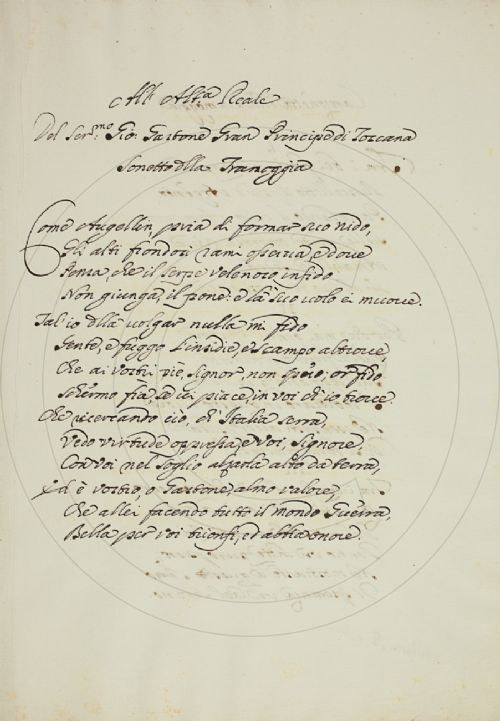 All' Alt.a Reale
Del Ser.mo Gio: Gastone Gran Principe di Toscana
Sonetto della Tramoggia
Come Augellin, pria di formar suo nido,
Gli alti frondosi rami osserva, e dove
Pensa, che il serpe velenoso infido
Non giunga, il pone: e là suo volo ei muove.
Tal io della volgar nulla mi fido
Gente, e fuggo l'insidie, e scampo altrove,
Che ai vostri piè, Signor, non spero, or fido
Schermo fia, se vi piace, in voi ch'io trove
Che ricercando ciò, ch'Italia serra,
Vedo virtude oppressa, e voi, Signore
Con voi nel soglio alzarla alto da terra,
Ed è vostro, o Gastone, almo valore,
Che a lei facendo tutto il mondo Guerra,
Bella per voi trionfi, et abbia onore.